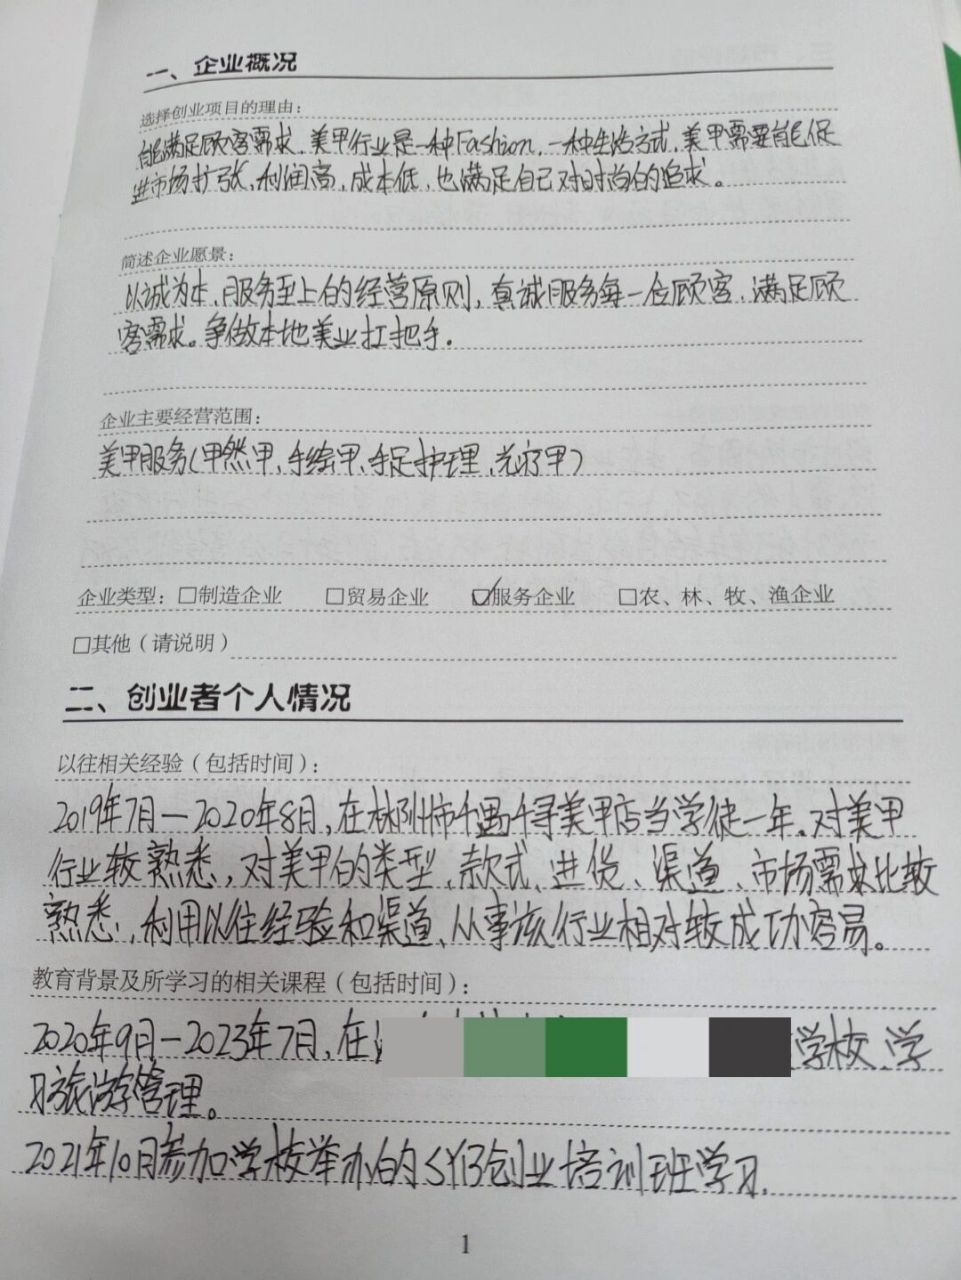 一、企业概况
选择创业项目的理由：
能满足顾客需求，美甲行业是一种Fashion，一种生活方式，美甲需要能促
进市场扩张，利润高，成本低，也满足自己对时尚的追求。
简述企业愿景：
以诚为本，服务至上的经营原则，真诚服务每一位顾客，满足顾
客需求。争做本地美业扛把手。
企业主要经营范围：
美甲服务（甲然甲，手绘甲，手足护理，光疗甲）
企业类型：□制造企业 □贸易企业 ☑服务企业 □农、林、牧、渔企业
□其他（请说明）
二、创业者个人情况
以往相关经验（包括时间）：
2019年7月—2020年8月，在林州市千遇千寻美甲店当学徒一年。对美甲
行业较熟悉，对美甲的类型、款式、进货、渠道、市场需求比较
熟悉，利用以往经验和渠道，从事该行业相对较成功容易。
教育背景及所学习的相关课程（包括时间）：
2020年9月—2023年7月，在 学校，学
习旅游管理。
2021年10月参加学校举办的SYB创业培训班学习.
1